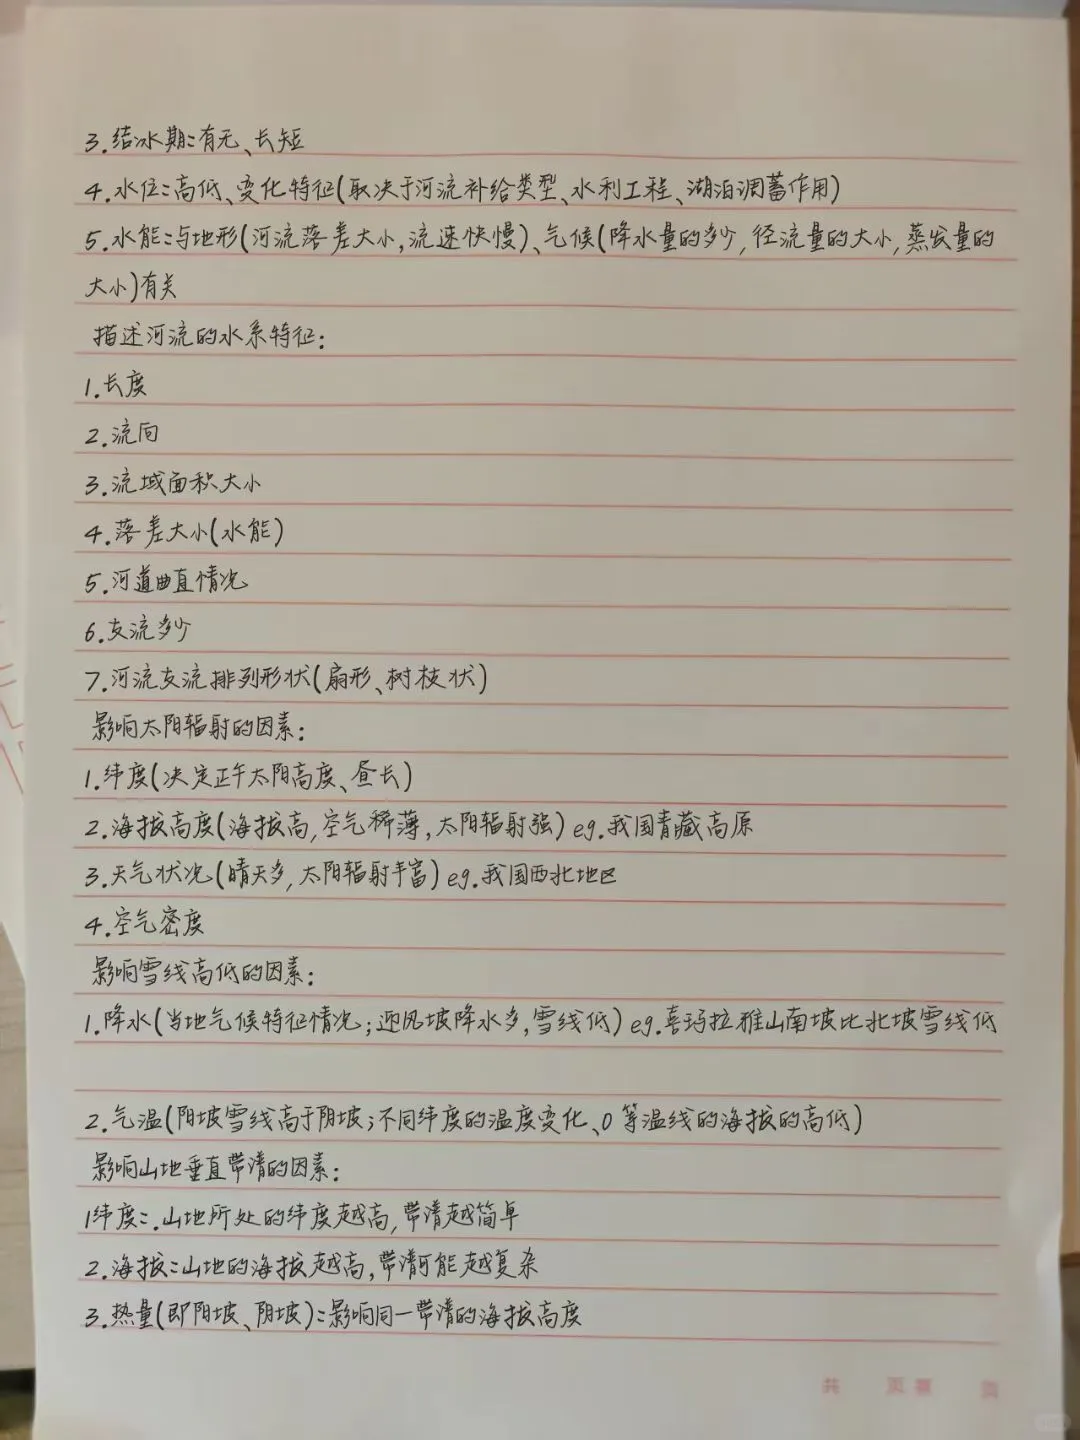 3.结冰期:有无、长短
4.水位:高低、变化特征(取决于河流补给类型、水利工程、湖泊调蓄作用)
5.水能:与地形(河流落差大小,流速快慢)、气候(降水量的多少,径流量的大小,蒸发量的
大小)有关
描述河流的水系特征:
1.长度
2.流向
3.流域面积大小
4.落差大小(水能)
5.河道曲直情况
6.支流多少
7.河流支流排列形状(扇形、树枝状)
影响太阳辐射的因素:
1.纬度(决定正午太阳高度、昼长)
2.海拔高度(海拔高,空气稀薄,太阳辐射强)eg.我国青藏高原
3.天气状况(晴天多,太阳辐射丰富)eg.我国西北地区
4.空气密度
影响雪线高低的因素:
1.降水(当地气候特征情况;迎风坡降水多,雪线低)eg.喜玛拉雅山南坡比北坡雪线低
2.气温(阳坡雪线高于阴坡;不同纬度的温度变化、0等温线的海拔的高低)
影响山地垂直带谱的因素:
1纬度:.山地所处的纬度越高,带谱越简单
2.海拔:山地的海拔越高,带谱可能越复杂
3.热量(即阳坡、阴坡):影响同一带谱的海拔高度
共 页第 页